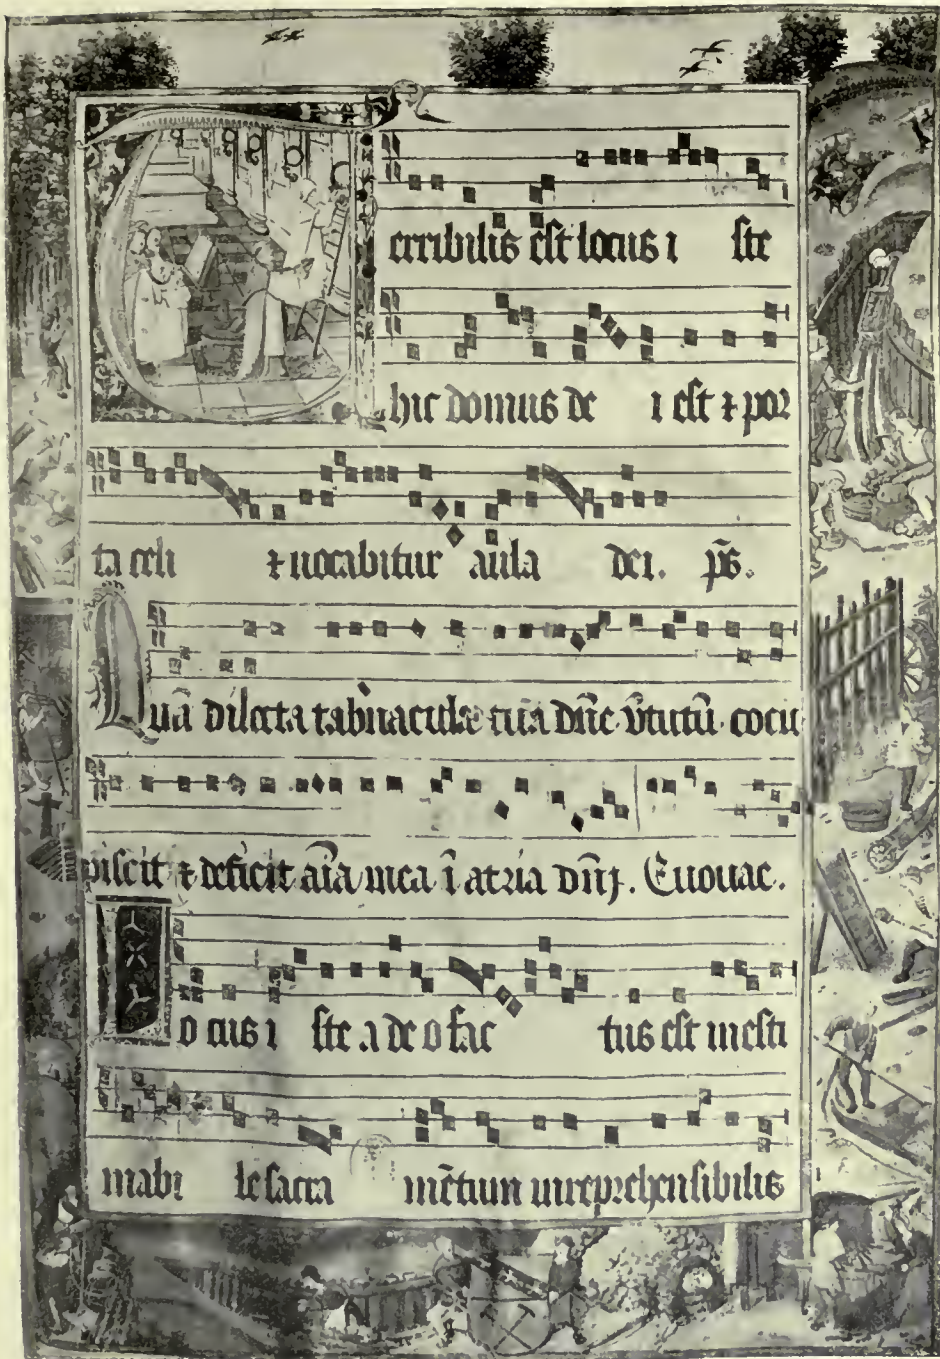 Terribilis est locus i ste
hic domus de i est ⁊ por
ta celi ⁊ uocabitur aula dei. ps̄.
Quā dilecta tab̓nacula tua dn̄e v̓tutū cocu
piscit ⁊ deficit aīa mea ī atria dn̄ȷ. Euouae.
Locus i ste a de o fac tus est inesti
mabi le sacra mētum inreprehensibilis